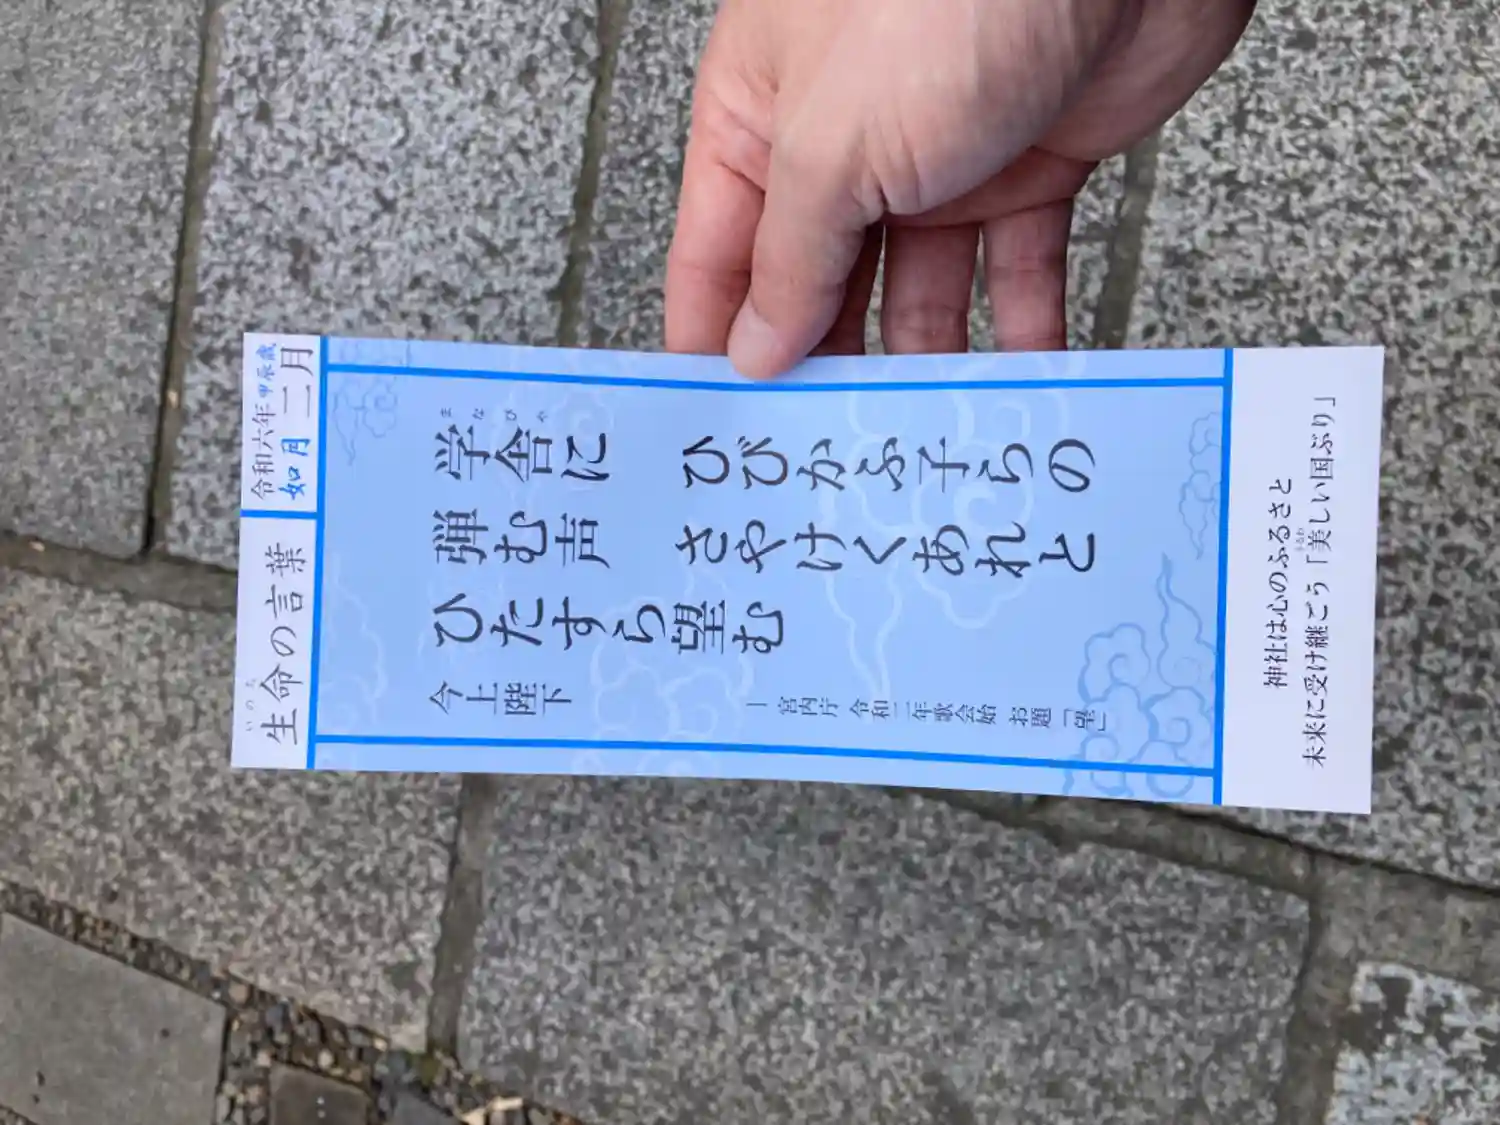 生命の言葉
いのち
令和六年甲辰歳
如月 二月
学舎に ひびかふ子らの
まなびや
弾む声 さやけくあれと
ひたすら望む
今上陛下 ― 宮内庁 令和二年歌会始 お題「望」
神社は心のふるさと
未来に受け継ごう「美しい国ぶり」
うるわ